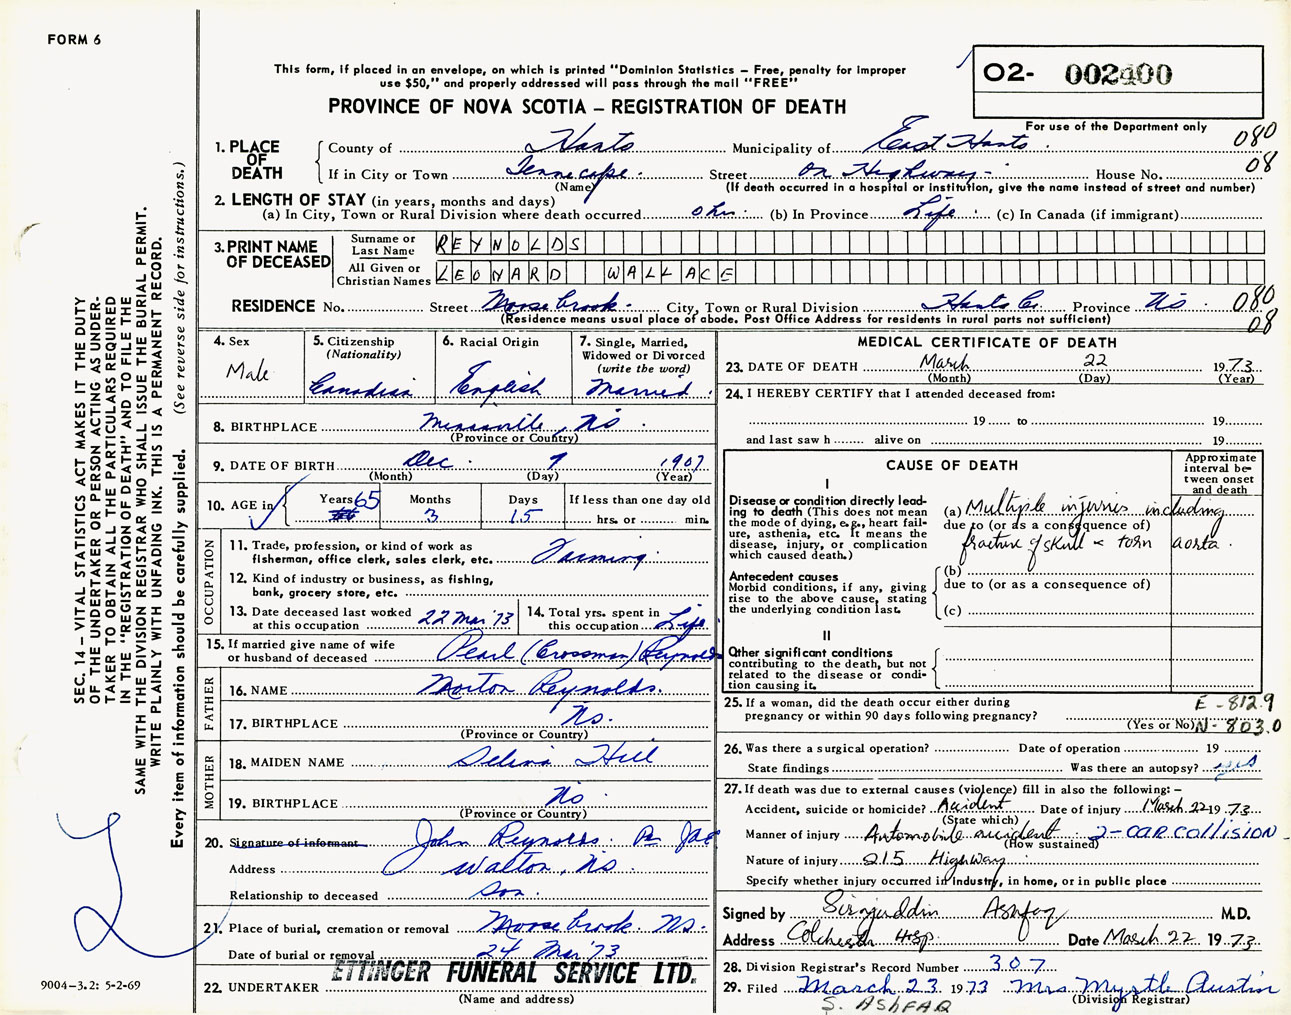 FORM 6
O2- 002400
This form, if placed in an envelope, on which is printed "Dominion Statistics – Free, penalty for improper
use $50," and properly addressed will pass through the mail "FREE"
PROVINCE OF NOVA SCOTIA – REGISTRATION OF DEATH
For use of the Department only
080
08
1. PLACE OF DEATH
County of Hants Municipality of East Hants
If in City or Town Tennecape Street on Highway House No.
(Name) (If death occurred in a hospital or institution, give the name instead of street and number)
2. LENGTH OF STAY (in years, months and days)
(a) In City, Town or Rural Division where death occurred o hrs. (b) In Province Life (c) In Canada (if immigrant)
3. PRINT NAME OF DECEASED
Surname or Last Name REYNOLDS
All Given or Christian Names LEONARD WALLACE
RESIDENCE No. Street Moose brook City, Town or Rural Division Hants Co. Province NS 080
(Residence means usual place of abode. Post Office Address for residents in rural parts not sufficient) 08
4. Sex
Male
5. Citizenship
(Nationality)
Canadian
6. Racial Origin
English
7. Single, Married,
Widowed or Divorced
(write the word)
Married
8. BIRTHPLACE Minasville, NS
(Province or Country)
9. DATE OF BIRTH Dec 7 1907
(Month) (Day) (Year)
10. AGE in Years 65 Months 3 Days 15 If less than one day old
hrs. or min.
OCCUPATION
11. Trade, profession, or kind of work as
fisherman, office clerk, sales clerk, etc. Farming
12. Kind of industry or business, as fishing,
bank, grocery store, etc.
13. Date deceased last worked
at this occupation 22 Mar '73
14. Total yrs. spent in
this occupation Life
15. If married give name of wife
or husband of deceased Pearl (Crossman) Reynolds
FATHER
16. NAME Morton Reynolds.
17. BIRTHPLACE NS.
(Province or Country)
MOTHER
18. MAIDEN NAME Selina Hill
19. BIRTHPLACE NS
(Province or Country)
20. Signature of informant John Reynolds Per
Address Walton, NS.
Relationship to deceased Son.
21. Place of burial, cremation or removal Moose brook NS.
Date of burial or removal 24 Mar '73
22. UNDERTAKER ETTINGER FUNERAL SERVICE LTD.
(Name and address)
MEDICAL CERTIFICATE OF DEATH
23. DATE OF DEATH March 22 1973
(Month) (Day) (Year)
24. I HEREBY CERTIFY that I attended deceased from:
19 to 19
and last saw h alive on 19
CAUSE OF DEATH
Approximate
interval be-
tween onset
and death
I
Disease or condition directly lead-
ing to death (This does not mean
the mode of dying, e.g., heart fail-
ure, asthenia, etc. It means the
disease, injury, or complication
which caused death.)
(a) Multiple injuries including
due to (or as a consequence of)
fracture of skull & torn aorta.
Antecedent causes
Morbid conditions, if any, giving
rise to the above cause, stating
the underlying condition last.
(b)
due to (or as a consequence of)
(c)
II
Other significant conditions
contributing to the death, but not
related to the disease or condi-
tion causing it.
25. If a woman, did the death occur either during
pregnancy or within 90 days following pregnancy?
(Yes or No)
E-812.9
N-803.0
26. Was there a surgical operation? Date of operation 19
State findings Was there an autopsy? yes
27. If death was due to external causes (violence) fill in also the following:–
Accident, suicide or homicide? Accident Date of injury March 22 1973
(State which)
Manner of injury Automobile accident 2-CAR COLLISION
(How sustained)
Nature of injury 215 Highway
Specify whether injury occurred in industry, in home, or in public place
Signed by Sirajuddin Ashfaq M.D.
Address Colchester Hosp. Date March 22 1973
28. Division Registrar's Record Number 307
29. Filed March 23 1973 Mrs Myrtle Austin
(Division Registrar)
S. ASHFAQ
SEC. 14 – VITAL STATISTICS ACT MAKES IT THE DUTY
OF THE UNDERTAKER OR PERSON ACTING AS UNDER-
TAKER TO OBTAIN ALL THE PARTICULARS REQUIRED
IN THE "REGISTRATION OF DEATH" AND TO FILE THE
SAME WITH THE DIVISION REGISTRAR WHO SHALL ISSUE THE BURIAL PERMIT.
WRITE PLAINLY WITH UNFADING INK. THIS IS A PERMANENT RECORD.
Every item of information should be carefully supplied. (See reverse side for instructions.)
9004-3.2: 5-2-69